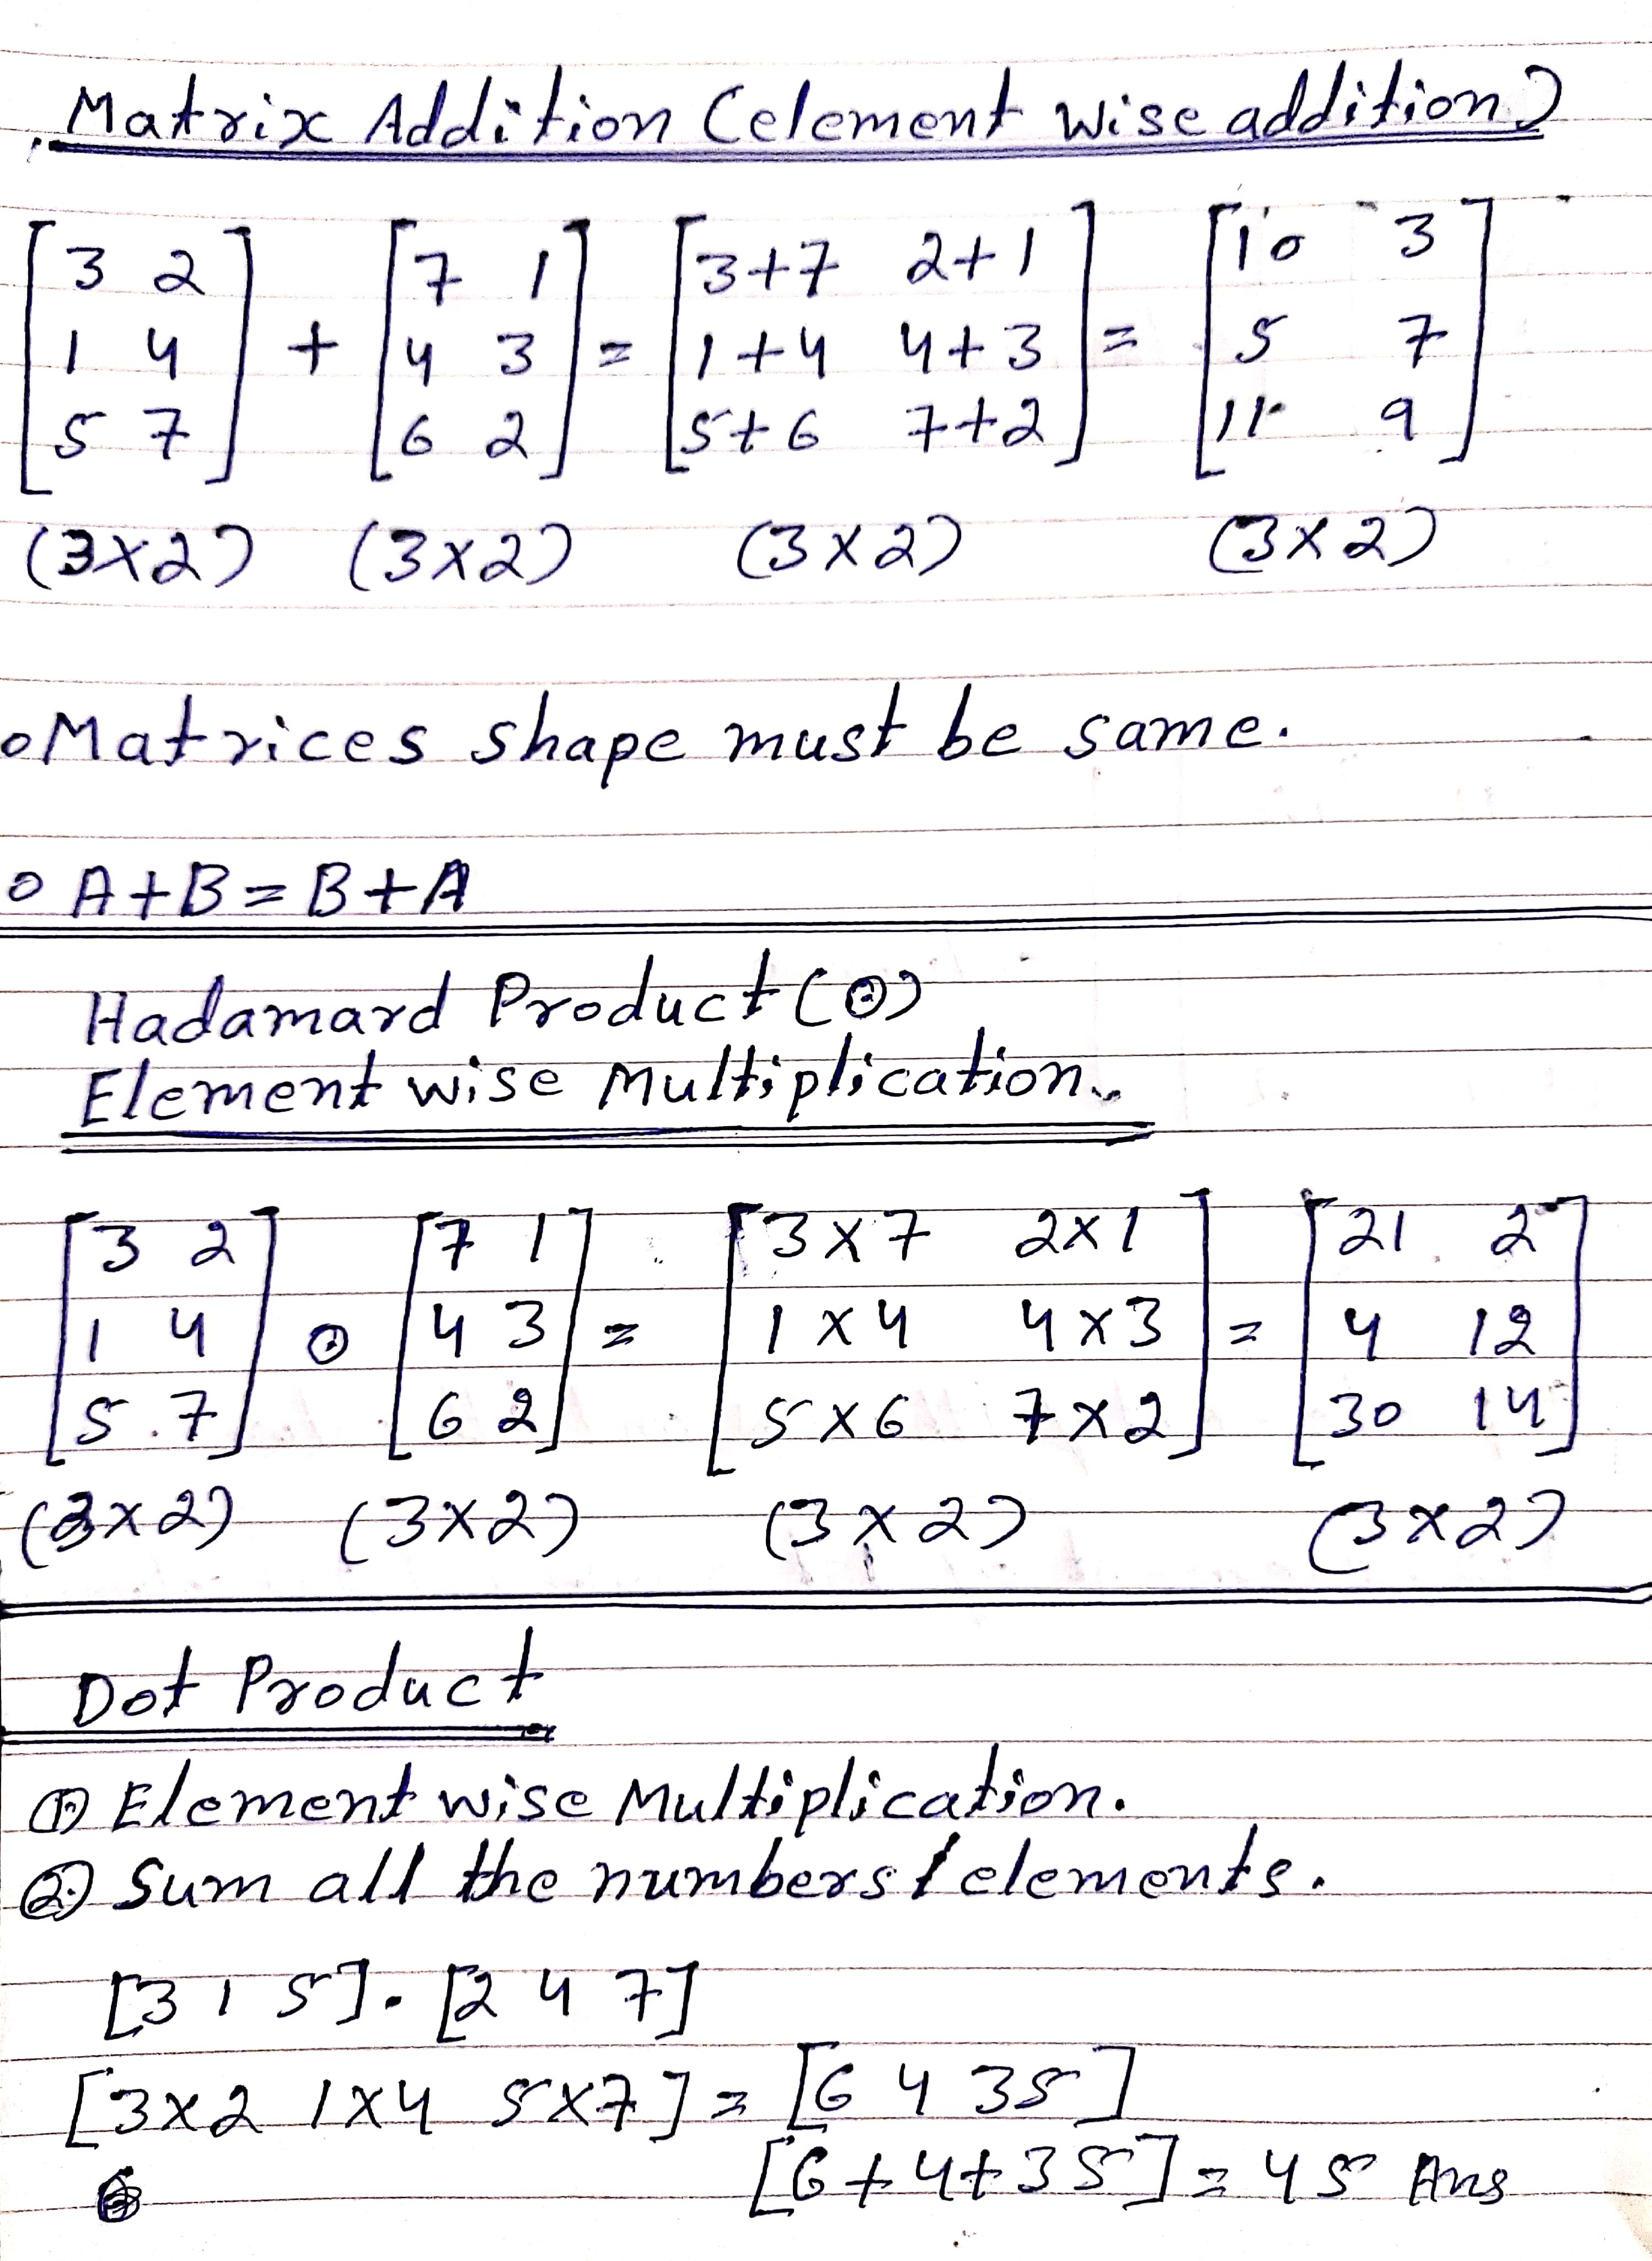 Matrix Addition (element wise addition)
[3 2; 1 4; 5 7] + [7 1; 4 3; 6 2] = [3+7 2+1; 1+4 4+3; 5+6 7+2] = [10 3; 5 7; 11 9]
(3×2) (3×2) (3×2) (3×2)
o Matrices shape must be same.
o A+B=B+A
Hadamard Product (⊙)
Element wise Multiplication.
[3 2; 1 4; 5 7] ⊙ [7 1; 4 3; 6 2] = [3×7 2×1; 1×4 4×3; 5×6 7×2] = [21 2; 4 12; 30 14]
(3×2) (3×2) (3×2) (3×2)
Dot Product
① Element wise Multiplication.
② Sum all the numbers/elements.
[3 1 5]. [2 4 7]
[3×2 1×4 5×7] = [6 4 35]
[6+4+35] = 45 Ans